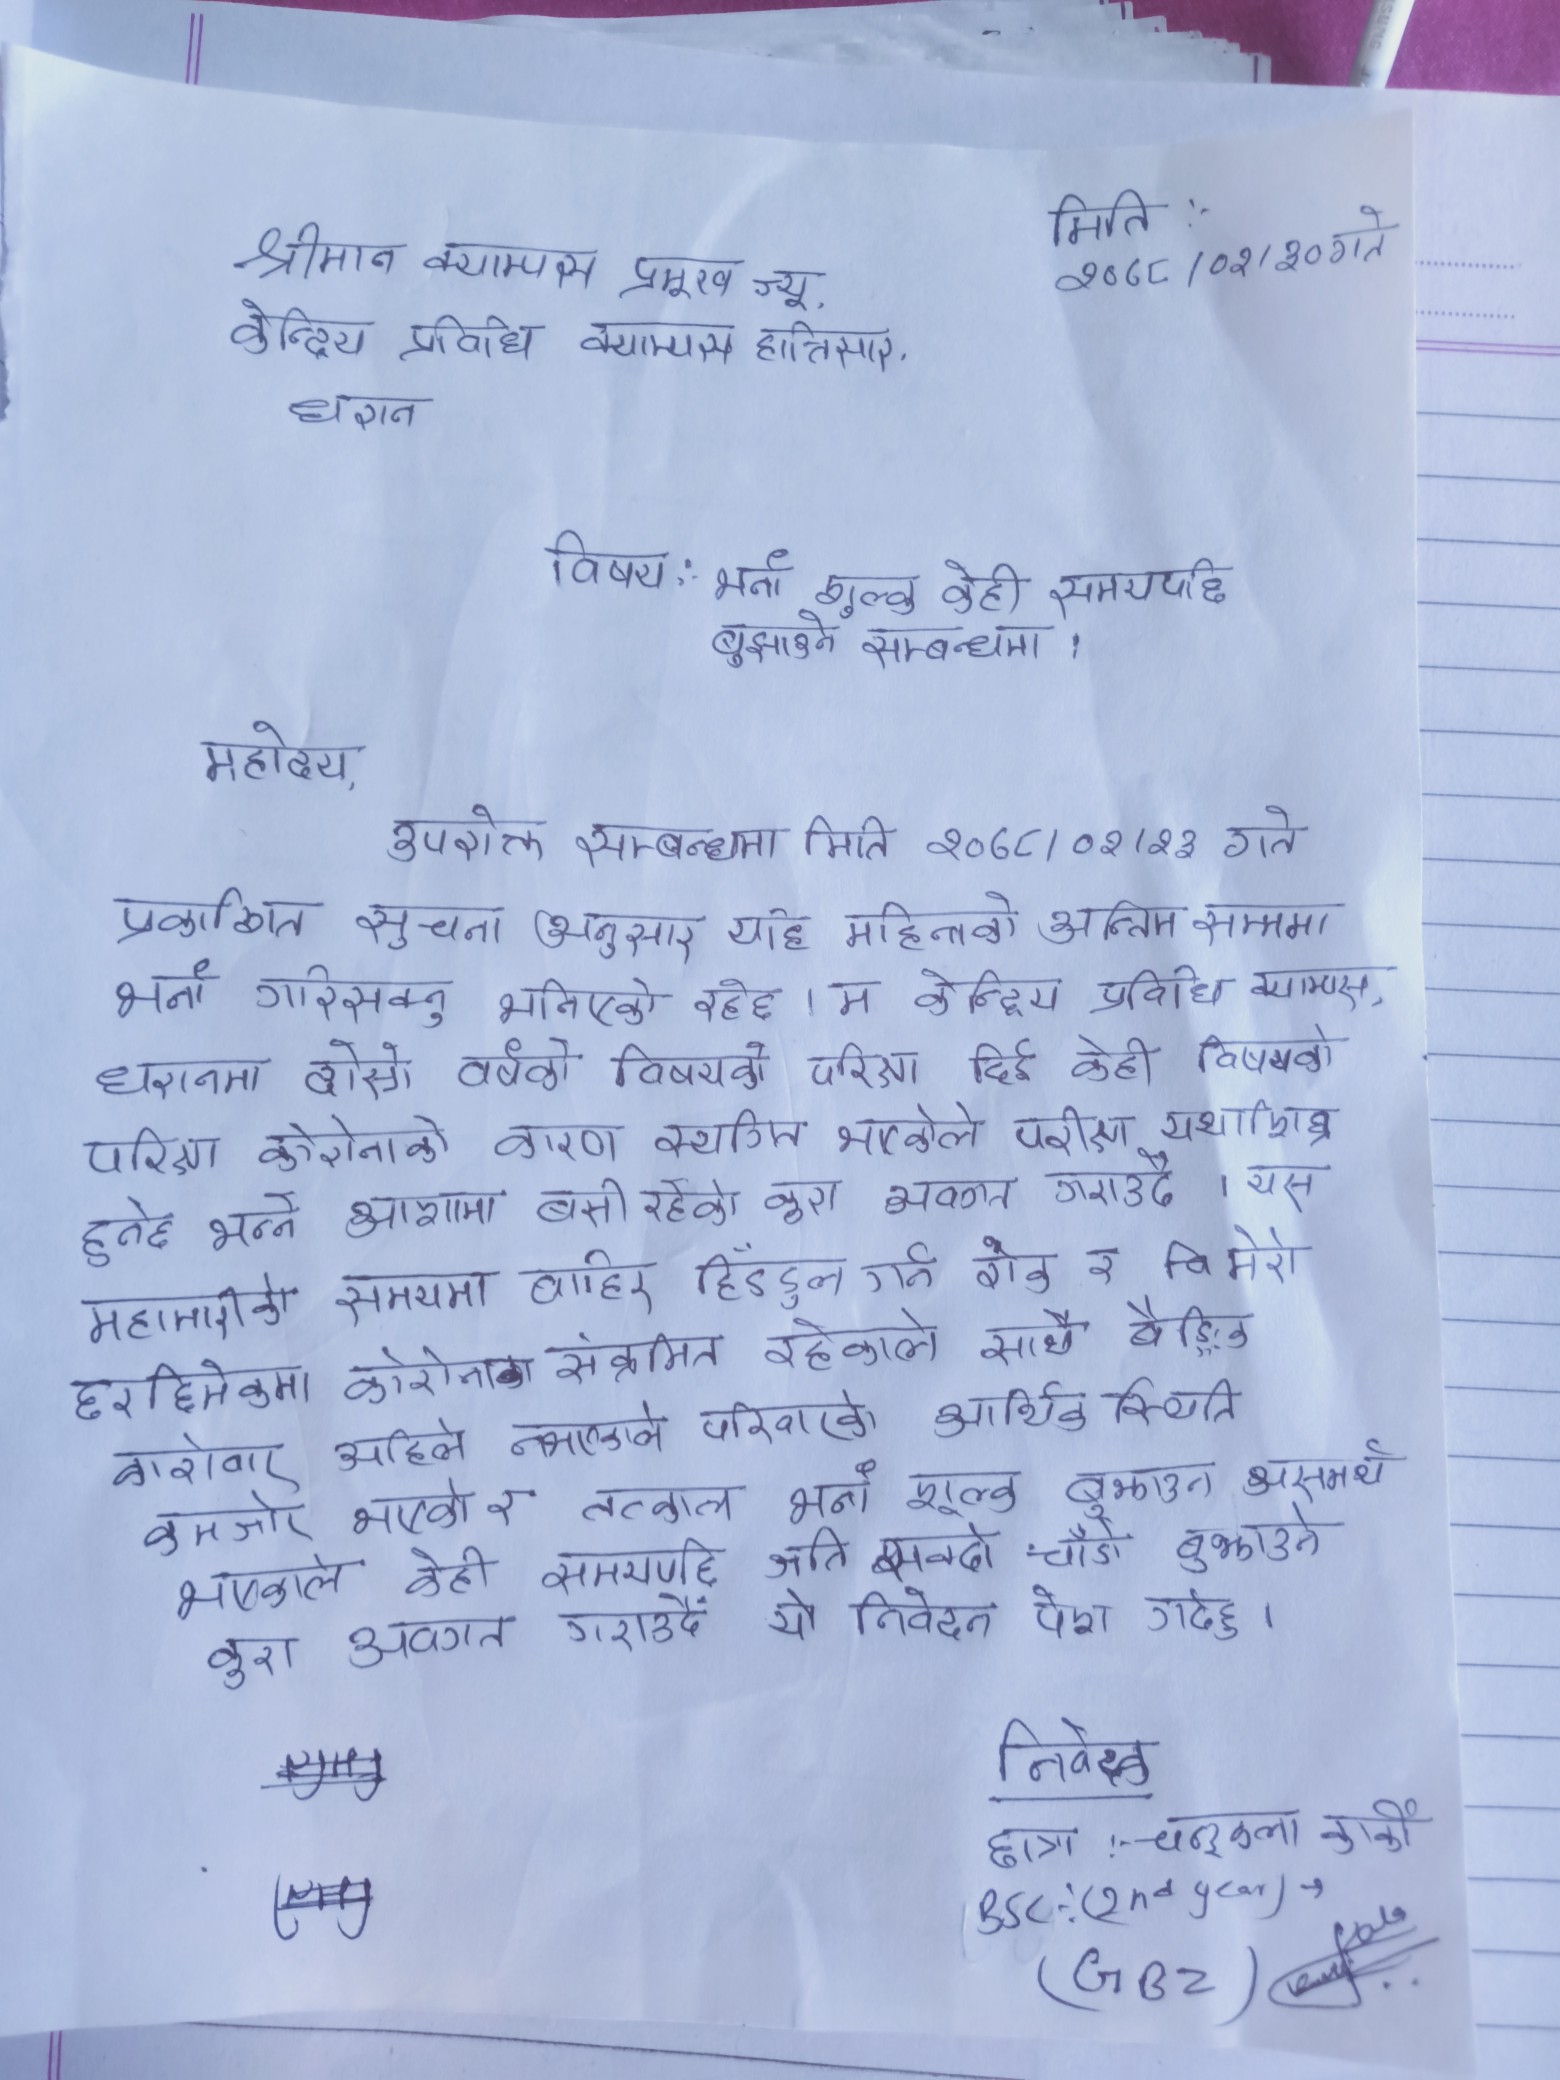 मिति :-
२०७८/०२/३०गते
श्रीमान क्याम्पस प्रमूख ज्यू,
केन्द्रिय प्रविधि क्याम्पस हात्तिसार,
धरान
विषय:- भर्ना शुल्क केही समयपछि
बुझाउने सम्बन्धमा ।
महोदय,
उपरोक्त सम्बन्धमा मिति २०७८/०२/२३ गते
प्रकाशित सुचना अनुसार यहि महिनाको अन्तिम सम्ममा
भर्ना गरिसक्नु भनिएको रहेछ । म केन्द्रिय प्रविधि क्याम्पस,
धरानमा दोस्रो वर्षको विषयको परिक्षा दिई केही विषयको
परिक्षा कोरोनाको कारण स्थगित भएकोले परीक्षा यथाशिघ्र
हुनेछ भन्ने आशामा बसी रहेको कुरा अवगत गराउदै । यस
महामारीको समयमा बाहिर हिँडडुल गर्न रोक र मेरो
छरछिमेकमा कोरोनाका संक्रमित रहेकाले साथै बैङ्क
कारोवार अहिले नभएकाले परिवारको आर्थिक स्थिति
कमजोर भएको र तत्काल भर्ना शूल्क बुझाउन असमर्थ
भएकाले केही समयपछि जति सक्दो चाँडो बुझाउने
कुरा अवगत गराउदैं यो निवेदन पेश गर्दछु ।
निवेदक
छात्रा :- चन्द्रकला कार्की
BSC:- (2nd year) →
(GBZ)